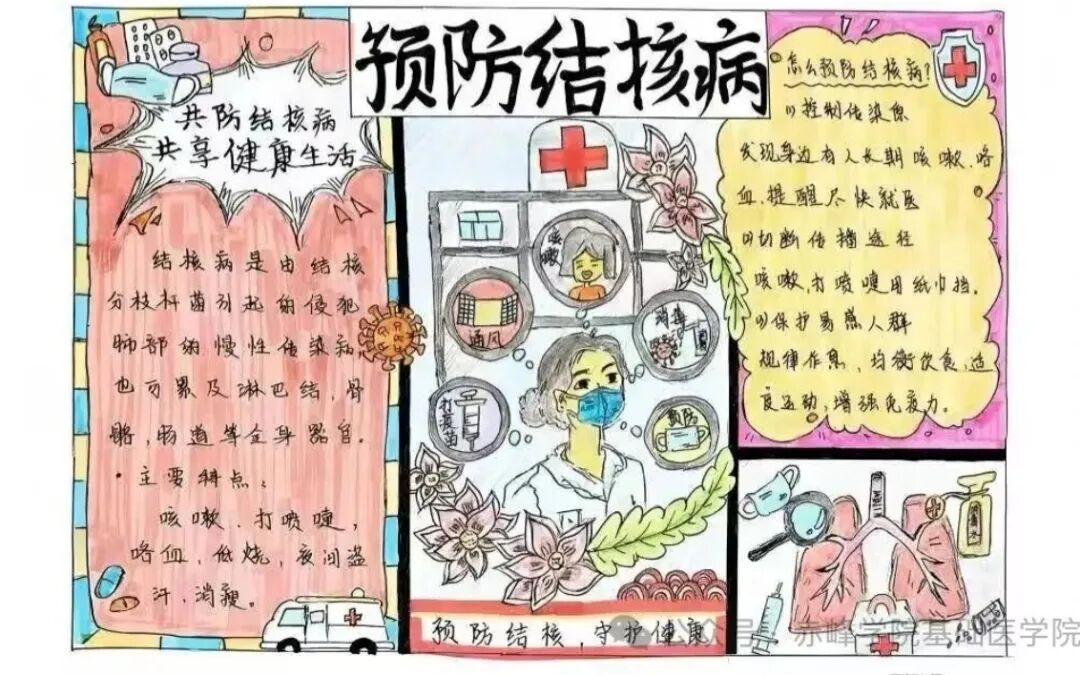 预防结核病
共防结核病
共享健康生活
结核病是由结核
分枝杆菌引起的侵犯
肺部的慢性传染病,
也可累及淋巴结,骨
骼,肠道等全身器官.
·主要特点:
咳嗽、打喷嚏,
咯血、低烧,夜间盗
汗、消瘦。
咳嗽
通风
消毒
打疫苗
预防
预防结核,守护健康
怎么预防结核病?
(1)控制传染原
发现身边有人长期咳嗽、咯
血,提醒尽快就医
(2)切断传播途径
咳嗽,打喷嚏用纸巾挡.
(3)保护易感人群
规律作息,均衡饮食,适
度运动,增强免疫力.
公众号·赤峰学院基础医学院